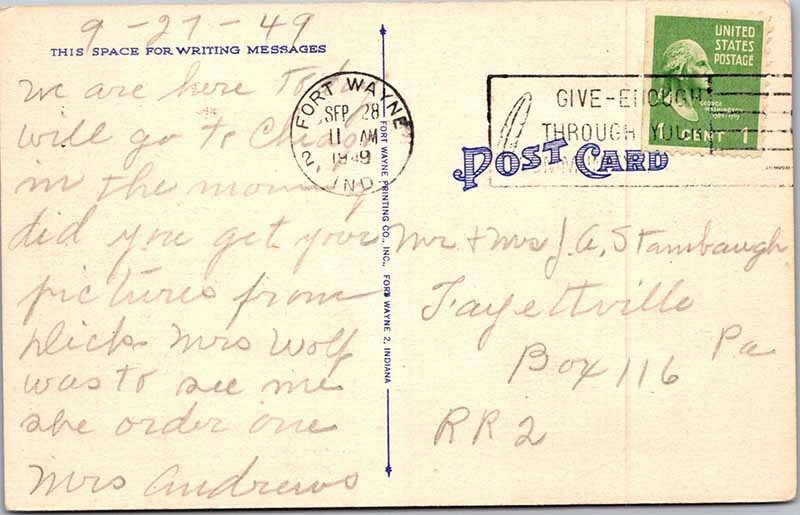 9-27-49
THIS SPACE FOR WRITING MESSAGES
we are here
will go to Chicago
in the morning
did you get your
pictures from
Dicks Mrs Wolf
was to see me
she order one
Mrs Andrews
FORT WAYNE
2
SEP 28
11 AM
1949
IND.
FORT WAYNE PRINTING CO., INC., FORT WAYNE 2, INDIANA
GIVE-ENOUGH
THROUGH YOUR
UNITED
STATES
POSTAGE
GEORGE
WASHINGTON
1 CENT 1
POST CARD
Mr & Mrs J. A. Stambaugh
Fayettville
Box 116 Pa
RR2